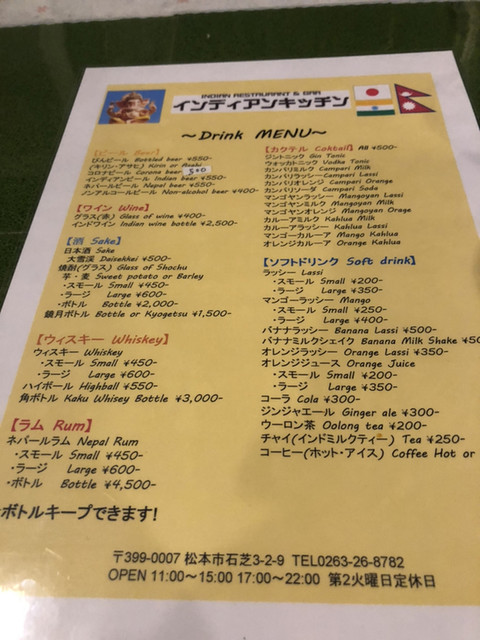 INDIAN RESTAURANT & BAR
インディアンキッチン
～Drink MENU～
【ビール Beer】
びんビール Bottled beer ¥550-
(キリン・アサヒ) Kirin or Asahi
コロナビール Corona beer 500
インディアンビール Indian beer ¥550-
ネパールビール Nepal beer ¥550-
ノンアルコールビール Non-alcohol beer ¥400-
【ワイン Wine】
グラス(赤) Glass of wine ¥400-
インドワイン Indian wine bottle ¥2,500-
【酒 Sake】
日本酒 Sake
大雪渓 Deisekkei ¥500-
焼酎(グラス) Glass of Shochu
芋・麦 Sweet potato or Barley
・スモール Small ¥450-
・ラージ Large ¥600-
・ボトル Bottle ¥2,000-
鏡月ボトル Bottle or Kyogetsu ¥1,500-
【ウィスキー Whiskey】
ウィスキー Whiskey
・スモール Small ¥450-
・ラージ Large ¥600-
ハイボール Highball ¥550-
角ボトル Kaku Whisey Bottle ¥3,000-
【ラム Rum】
ネパールラム Nepal Rum
・スモール Small ¥450-
・ラージ Large ¥600-
・ボトル Bottle ¥4,500-
ボトルキープできます!
【カクテル Coktail】 All ¥500-
ジントニック Gin Tonic
ウォッカトニック Vodka Tonic
カンパリミルク Campari Milk
カンパリラッシー Campari Lassi
カンパリオレンジ Campari Orange
カンパリソーダ Campari Soda
マンゴヤンラッシー Mangoyan Lassi
マンゴヤンミルク Mangoyan Milk
マンゴヤンオレンジ Mangoyan Orage
カルーアミルク Kahlua Milk
カルーアラッシー Kahlua Lassi
マンゴーカルーア Mango Kahlua
オレンジカルーア Orange Kahlua
【ソフトドリンク Soft drink】
ラッシー Lassi
・スモール Small ¥200-
・ラージ Large ¥350-
マンゴーラッシー Mango
・スモール Small ¥200-
・ラージ Large ¥400-
バナナラッシー Banana Lassi ¥500-
バナナミルクシェイク Banana Milk Shake ¥50
オレンジラッシー Orange Lassi ¥350-
オレンジジュース Orange Juice
・スモール Small ¥200-
・ラージ Large ¥350-
コーラ Cola ¥300-
ジンジャエール Ginger ale ¥300-
ウーロン茶 Oolong tea ¥200-
チャイ(インドミルクティー) Tea ¥250-
コーヒー(ホット・アイス) Coffee Hot or
〒399-0007 松本市石芝3-2-9 TEL0263-26-8782
OPEN 11:00～15:00 17:00～22:00 第2火曜日定休日